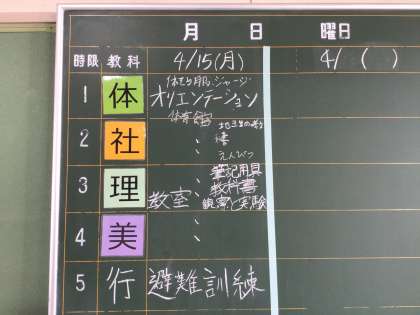 月 日 曜日
時限 教科 4/15(月) 4/ ( )
1 体 体そう服、ジャージ
オリエンテーション
体育館
2 社 〃
3 理 教室 〃 筆記用具
教科書
観察と実験
4 美 〃
えんぴつ
5 行 避難訓練